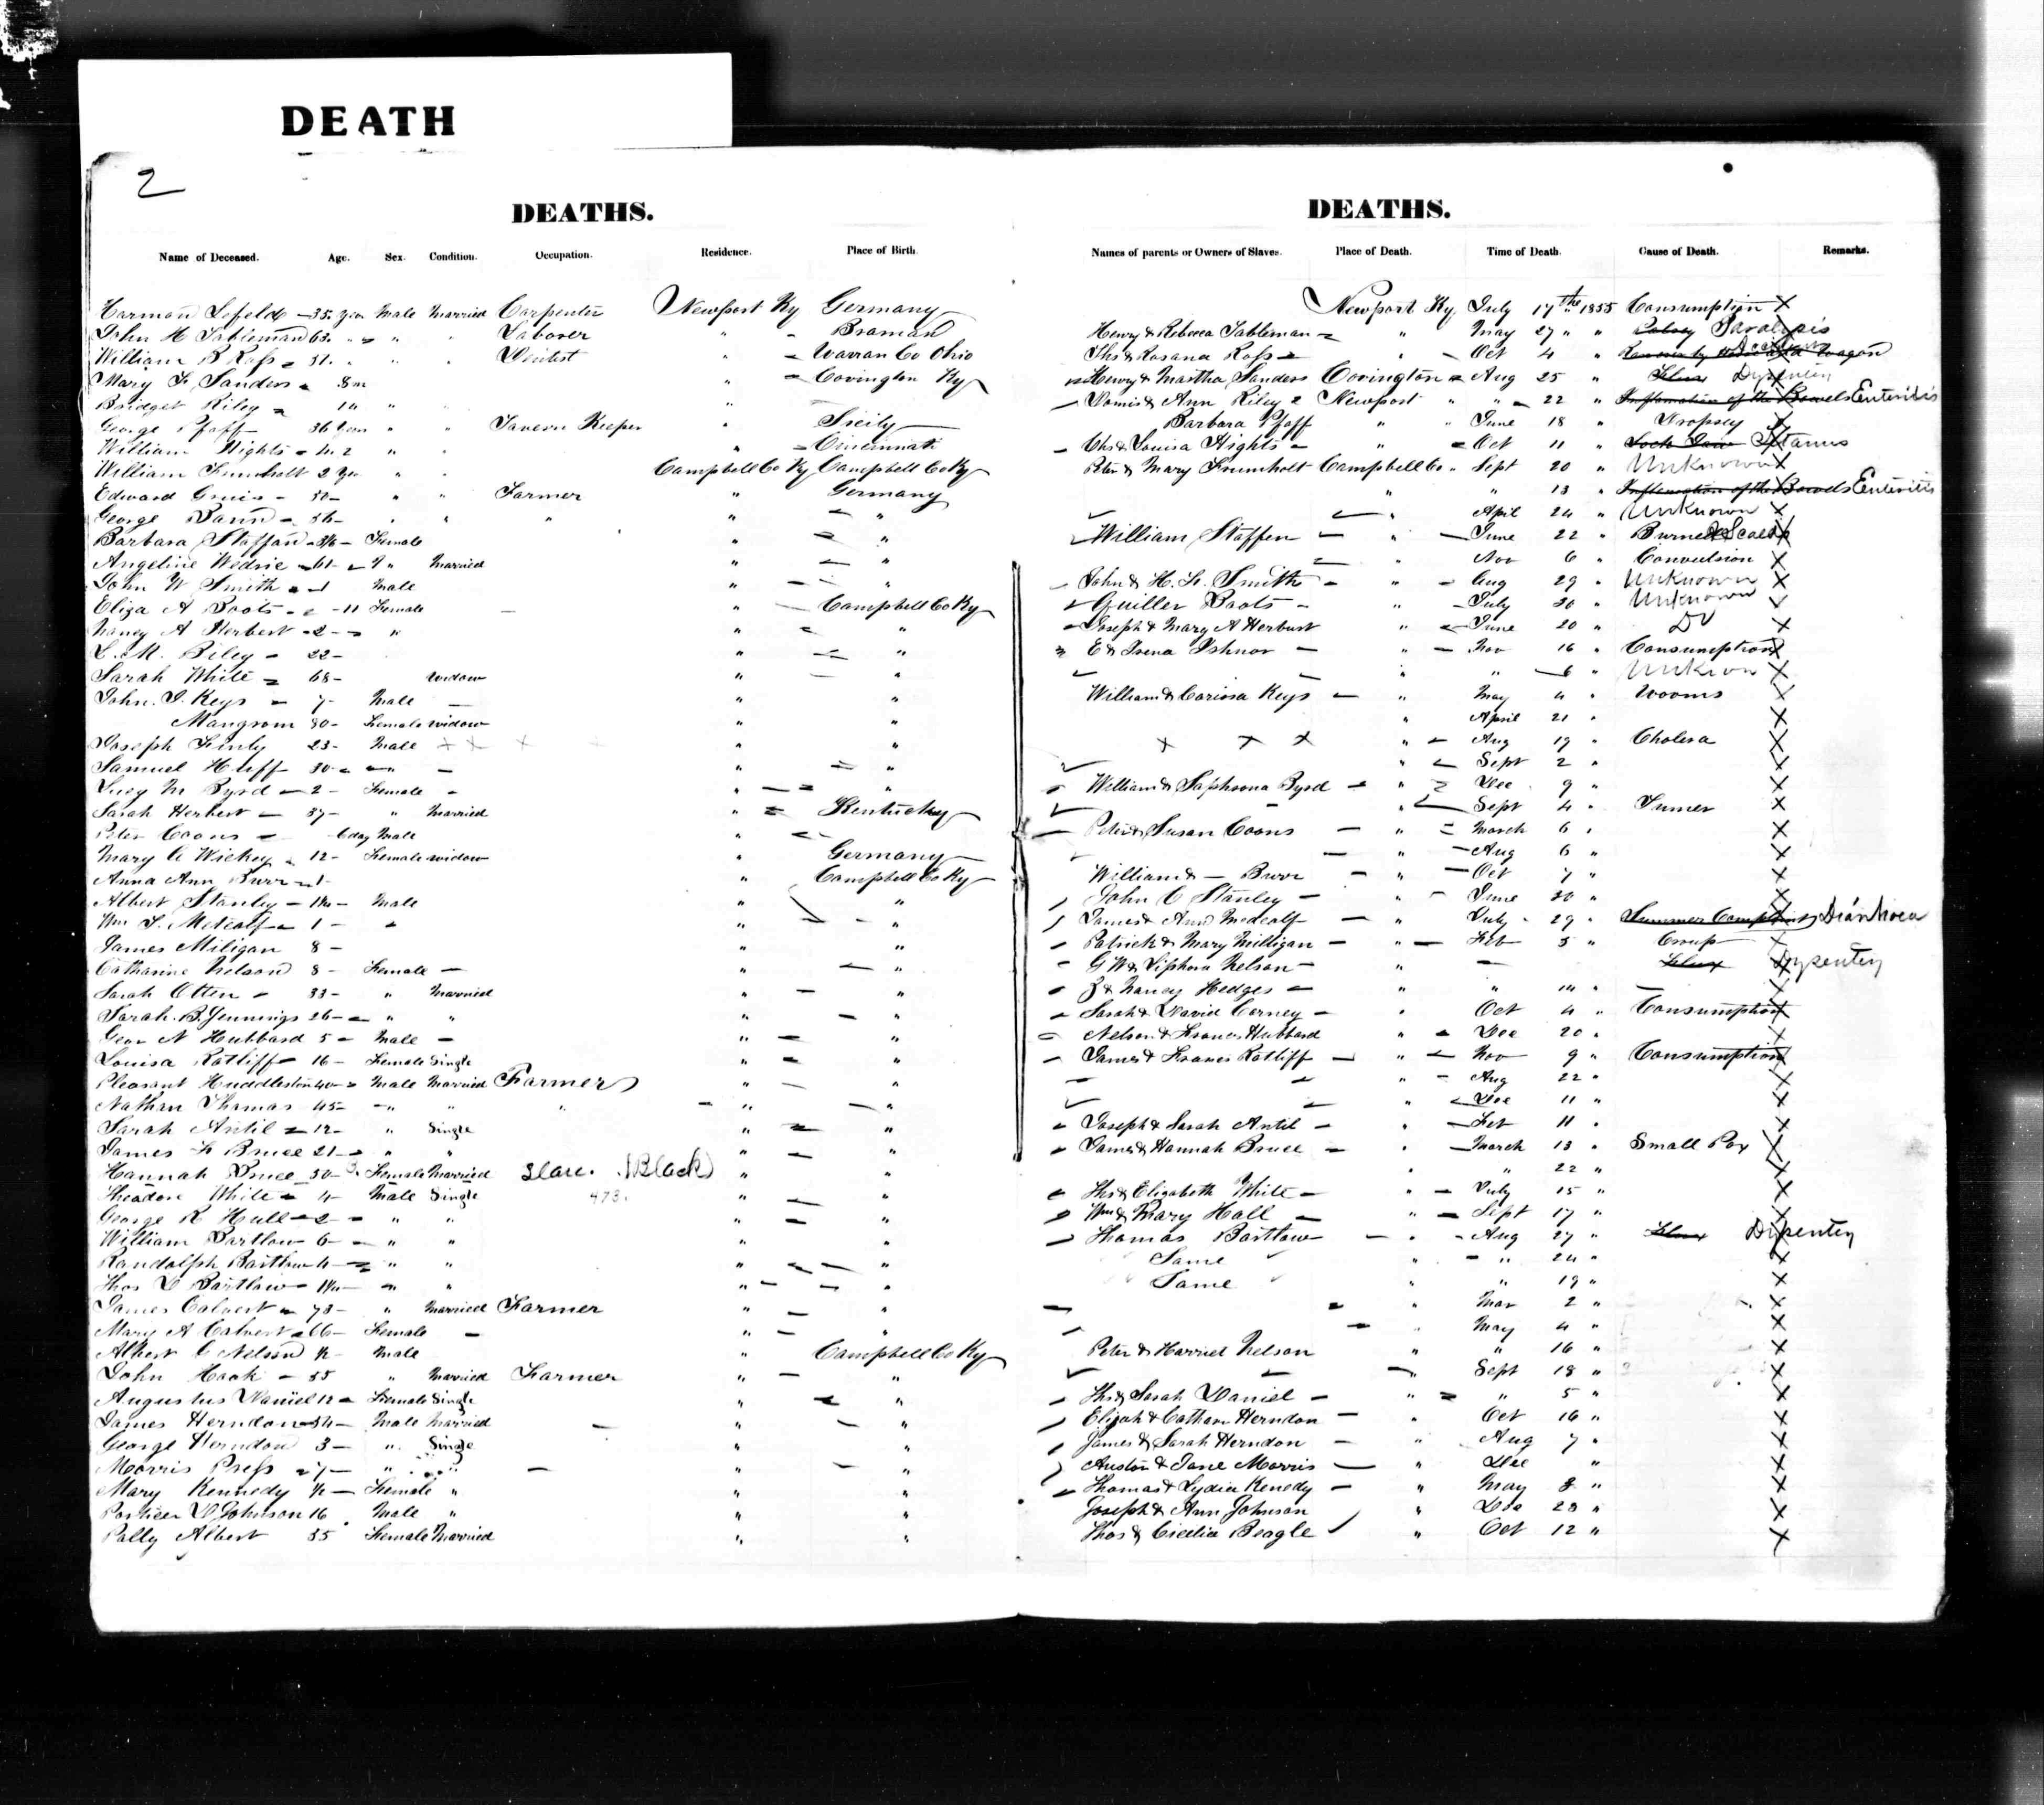 DEATH
2
DEATHS. DEATHS.
Name of Deceased. Age. Sex. Condition. Occupation. Residence. Place of Birth. Names of parents or Owners of Slaves. Place of Death. Time of Death. Cause of Death. Remarks.
Harmon Lefeld 35 yrs Male Married Carpenter Newport Ky Germany Newport Ky July 17th 1855 Consumption X
John H Tableman 63 " " " Laborer " Braman Henry & Rebecca Tableman " May 27 " " Palsy Paralysis
William B Ross 51 " " " Warran Co Ohio Ths & Rosana Ross " Oct 4 "
Mary F Sanders 8m " Covington Ky Henry & Martha Sanders Covington Aug 25 " Flux Dysentery
Bridget Riley " " " Ann Riley Newport " " 22 " Inflamation of the Bowels Enteritis
George Pfaff 36 Years " " Tavern Keeper " Sicily Barbara Pfaff " " June 18 " Dropsey X
William Hights " " Cincinnati Chs & Louisa Hights " Oct 11 " Lock Jaw
William Frumholt 2 Yrs " " Campbell Co Ky Campbell Co Ky Peter & Mary Frumholt Campbell Co " Sept 20 " Unknown X
Edward " " Farmer " Germany " " 13 " Inflamation of the Bowels Enteritis
George 56 " " " " " " April 24 " Unknown X
Barbara Staffan Female " " William Staffen " June 22 " Burned
Angeline 61 " Married " " Nov 6 " Convulsion X
John W Smith 1 Male " " John & H. F. Smith " Aug 29 " Unknown X
Eliza A Boots 11 Female " Campbell Co Ky Boots " July 30 " Unknown
Nancy A Herbert 2 " " " Joseph & Mary A Herbust " June 20 " Do X
L. M. Riley 22 " " E & Isena Ishnor " Nov 16 " Consumption X
Sarah White 68 Widow " " " " 6 " Unknown X
John. I. Keys 7 Male " " William & Cariosa Keys " May 4 " Wooms X
Mangrom 80 Female widow " " " April 21 " X
Joseph Finly 23 Male X X X " " X X X " Aug 19 " Cholera X
Samuel Huff 30 " " " " Sept 2 " X
Lucy M Byrd 2 Female " " William & Saphrona Byrd " Dec 9 " X
Sarah Herbert 37 " Married " Kentucky " Sept 4 " X
Peter Coons 6 day Male " Peter & Susan Coons " March 6 " X
Mary C Wickey 12 Female widow " Germany " Aug 6 " X
Anna Ann Burr 1 " Campbell Co Ky William & — Burr " Oct 7 " X
Albert Stanley Male " " John C Stanley " June 30 " X
Wm F. Metcalf 1 " " " James & Ann Medcalf " July 29 " Summer Complaint Diarrhoea
James Miligan 8 " " Patrick & Mary Milligan " Feb 5 " Croup X
Catharine Nelson 8 Female " " Nelson " Flux Dysentery
Sarah Otten 33 " Married " " Z & Nancy Hedges " " " X
Sarah. B. Jennings 26 " " " " Sarah & David Carney " Oct 4 " Consumption
Geor N Hubbard 5 Male " " Nelson & Frances Hubbard " Dec 20 " X
Louisa Ratliff 16 Female Single " " James & Frances Ratliff " Nov 9 " Consumption
Pleasant Huddleston 40 Male Married Farmer " " " Aug 22 " X
Nathan Thomas 45 " " " " " " Dec 11 " X
Sarah Antil 12 " Single " " Joseph & Sarah Antil " Feb 11 " X
James F Bruce 21 " " " " James & Hannah Bruce " March 13 " Small Pox X
Hannah Bruce 50 Female Married Slave. (Black) " " " " 22 " X
Theadore White 4 Male Single 473. " " Ths & Elizabeth White " July 15 " X
George R Hull 2 " " " " Wm & Mary Hall " Sept 17 " X
William Bartlow 6 " " " " Thomas Bartlow " Aug 27 " Flux Dysentery
Randolph Bartlow 4 " " " " Same " " 24 " X
Thos D Bartlow " " " " Same " " 19 " X
James Calvert 78 " Married Farmer " " " Mar 2 " X
Mary A Calvert 66 Female " " " May 4 " X
Albert C Nelson ½ Male " Campbell Co Ky Peter & Harriet Nelson " " 16 " X
John Hook 55 " Married Farmer " " " Sept 18 " X
Augustus Daniel 12 Female Single " " Ths & Sarah Daniel " " 5 " X
James Herndon 54 Male Married " " Elijah & Catharn Herndon " Oct 16 " X
George Herndon 3 " Single " " James & Sarah Herndon " Aug 7 " X
Morris Press 7 " " " " Auston & Jane Morris " Dec " X
Mary Kennedy ½ Female " " " Thomas & Lydia Kenedy " May 8 " X
D Johnson 16 Male " " " Joseph & Ann Johnson " Do 28 " X
Pally Albert 35 Female Married " " Thos & Cicelia Beagle " Oct 12 " X